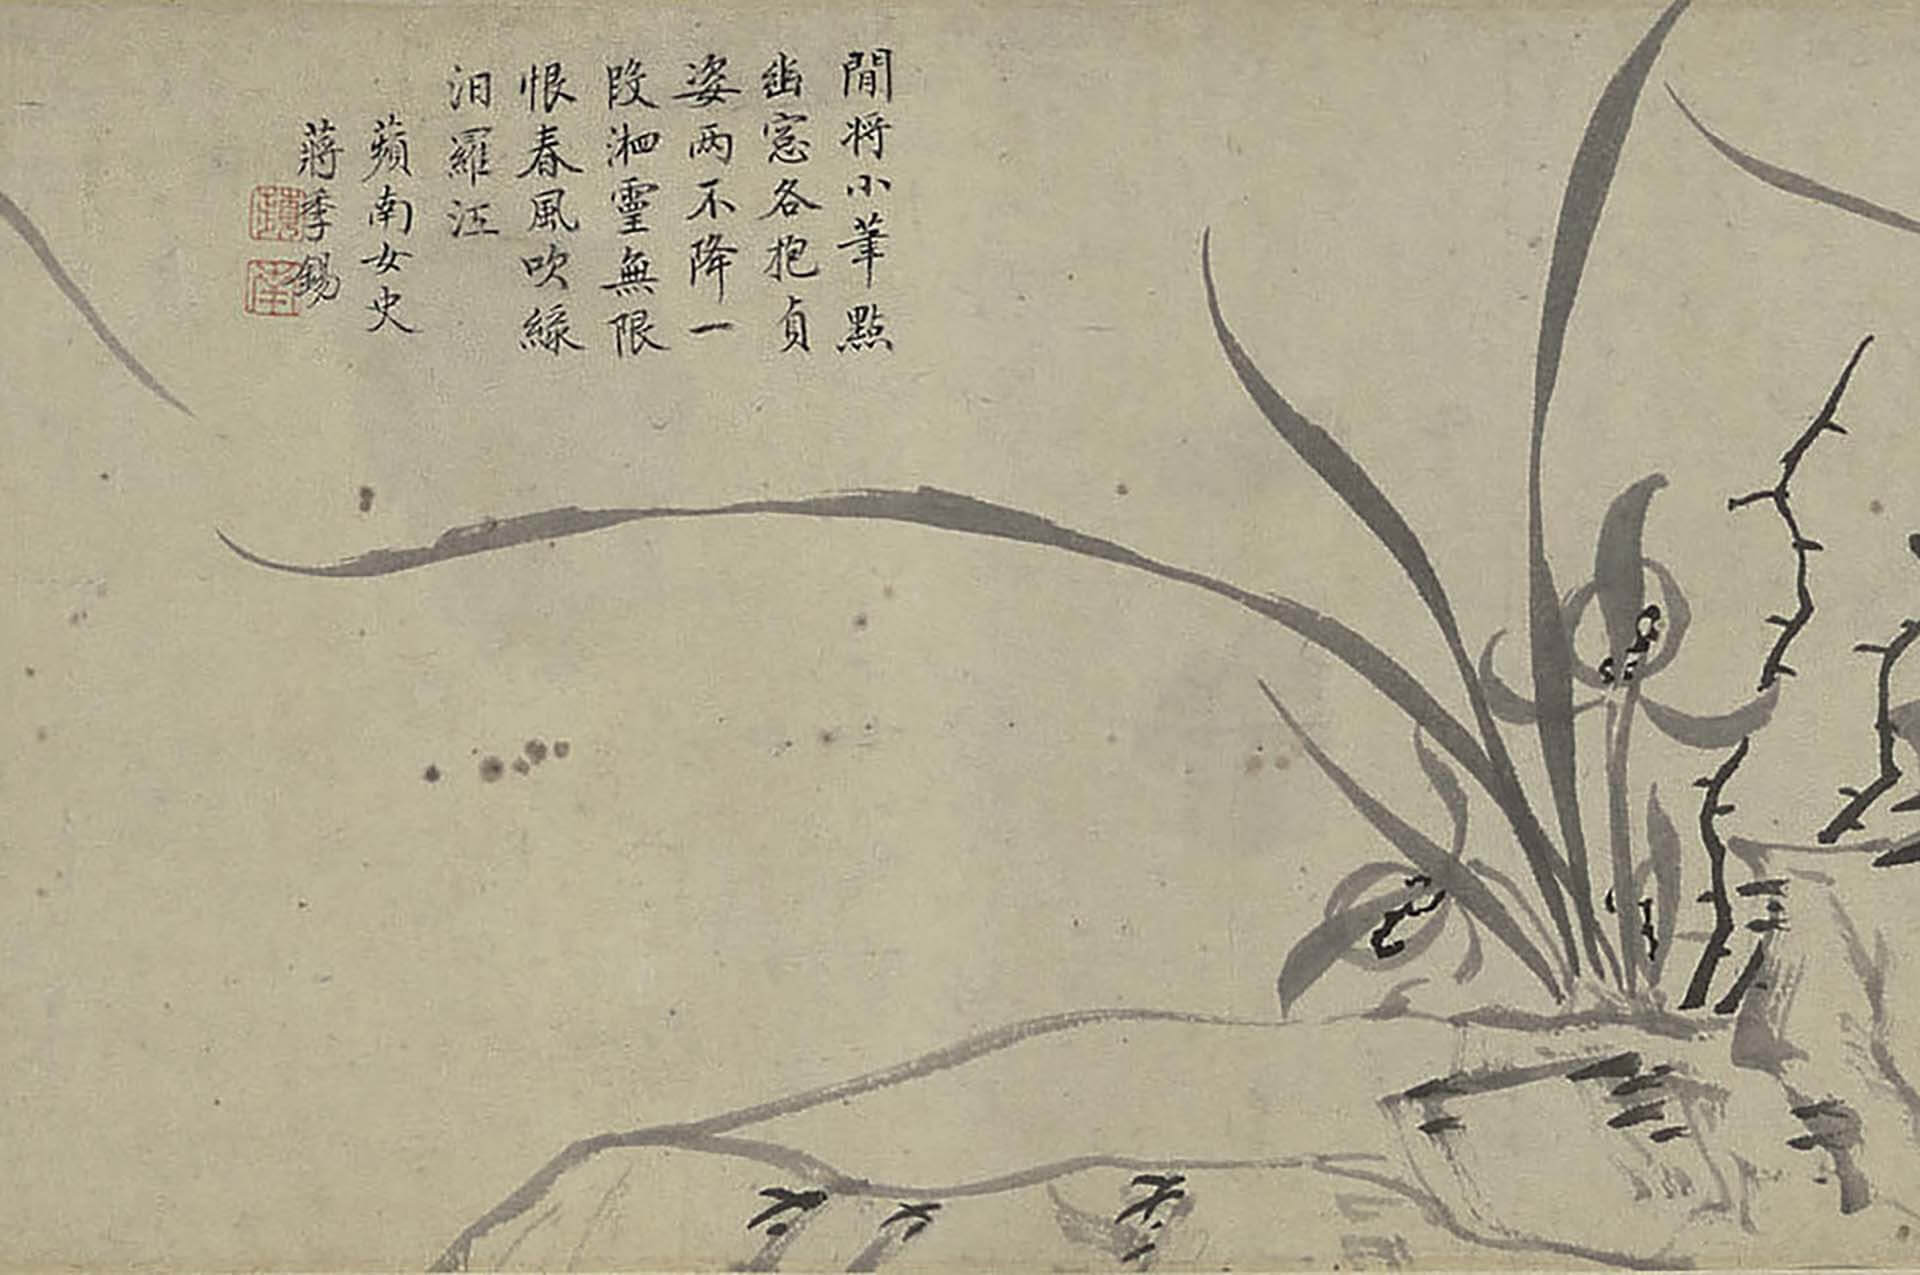 閒将小筆點
幽窓各抱貞
姿两不降一
段湘靈無限
恨春風吹綠
汨羅江
蘋南女史
蔣季錫